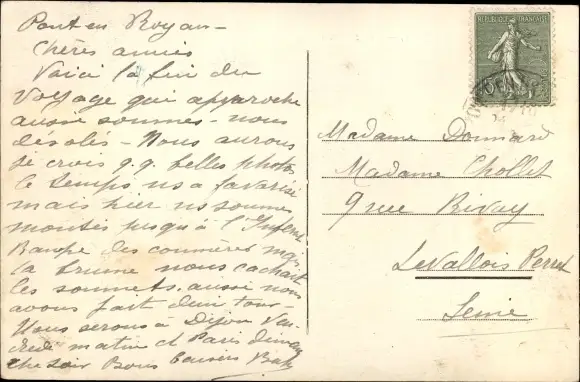 Pont en Royan -
Chères amies
Voici la fin du
voyage qui approche
aussi sommes-nous
désolés - Nous aurons
je crois q.q. belles photos
le temps ns a favorisé
mais hier ns sommes
montés jusqu'à l'
des mais
la brume nous cachait
les sommets. aussi nous
avons fait demi tour -
Nous serons à Dijon Ven-
dredi matin et Paris diman
che soir Bons baisers
REPUBLIQUE FRANÇAISE
Madame Donnard
Madame Chollet
9 rue Rivay
Levallois Perret
Seine